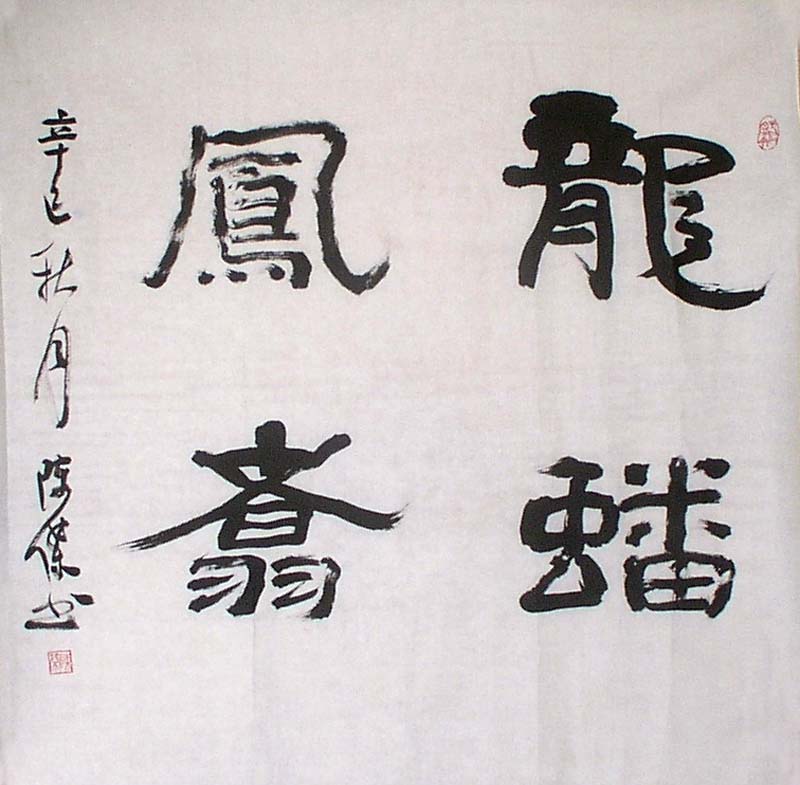 龍蟠
鳳翥
辛巳秋月 陈傑书